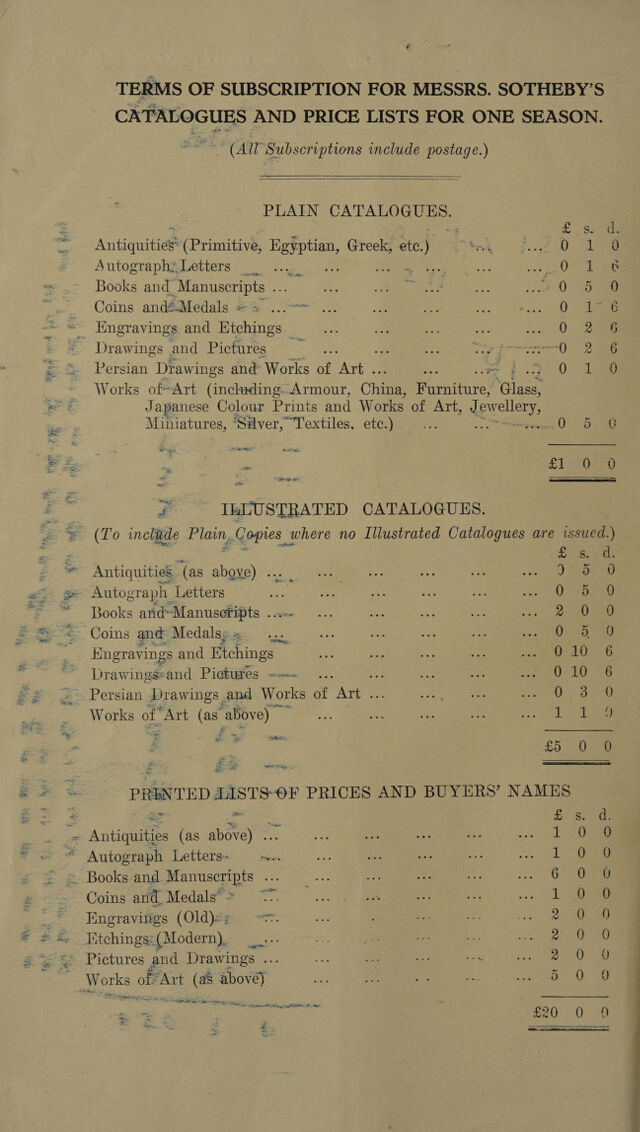 TERMS OF SUBSCRIPTION FOR MESSRS. SOTHEBY'S
CATALOGUES AND PRICE LISTS FOR ONE SEASON.
(All Subscriptions include postage.)
PLAIN CATALOGUES.
£ s. d.
Antiquities (Primitive, Egyptian, Greek, etc.) ... ... 0 1 0
Autograph Letters ... ... ... ... ... ... 0 1 6
Books and Manuscripts ... ... ... ... ... ... 0 5 0
Coins and Medals ... ... ... ... ... ... 0 1 6
Engravings and Etchings ... ... ... ... ... 0 2 6
Drawings and Pictures ... ... ... ... ... 0 2 6
Persian Drawings and Works of Art ... ... ... ... 0 1 0
Works of Art (including Armour, China, Furniture, Glass,
Japanese Colour Prints and Works of Art, Jewellery,
Miniatures, Silver, Textiles, etc.) ... ... ... 0 5 0
£1 0 0
ILLUSTRATED CATALOGUES.
(To include Plain Copies where no Illustrated Catalogues are issued.)
£ s. d.
Antiquities (as above) ... ... ... ... ... ... 0 5 0
Autograph Letters ... ... ... ... ... ... 0 5 0
Books and Manuscripts ... ... ... ... ... ... 2 0 0
Coins and Medals ... ... ... ... ... ... 0 5 0
Engravings and Etchings ... ... ... ... ... 0 10 6
Drawings and Pictures ... ... ... ... ... 0 10 6
Persian Drawings and Works of Art ... ... ... ... 0 3 0
Works of Art (as above) ... ... ... ... ... 1 1 0
£5 0 0
PRINTED LISTS OF PRICES AND BUYERS' NAMES
£ s. d.
Antiquities (as above) ... ... ... ... ... ... 1 0 0
Autograph Letters ... ... ... ... ... ... 1 0 0
Books and Manuscripts ... ... ... ... ... ... 6 0 0
Coins and Medals ... ... ... ... ... ... 1 0 0
Engravings (Old) ... ... ... ... ... ... 2 0 0
Etchings (Modern) ... ... ... ... ... ... 2 0 0
Pictures and Drawings ... ... ... ... ... ... 2 0 0
Works of Art (as above) ... ... ... ... ... 5 0 0
£20 0 0